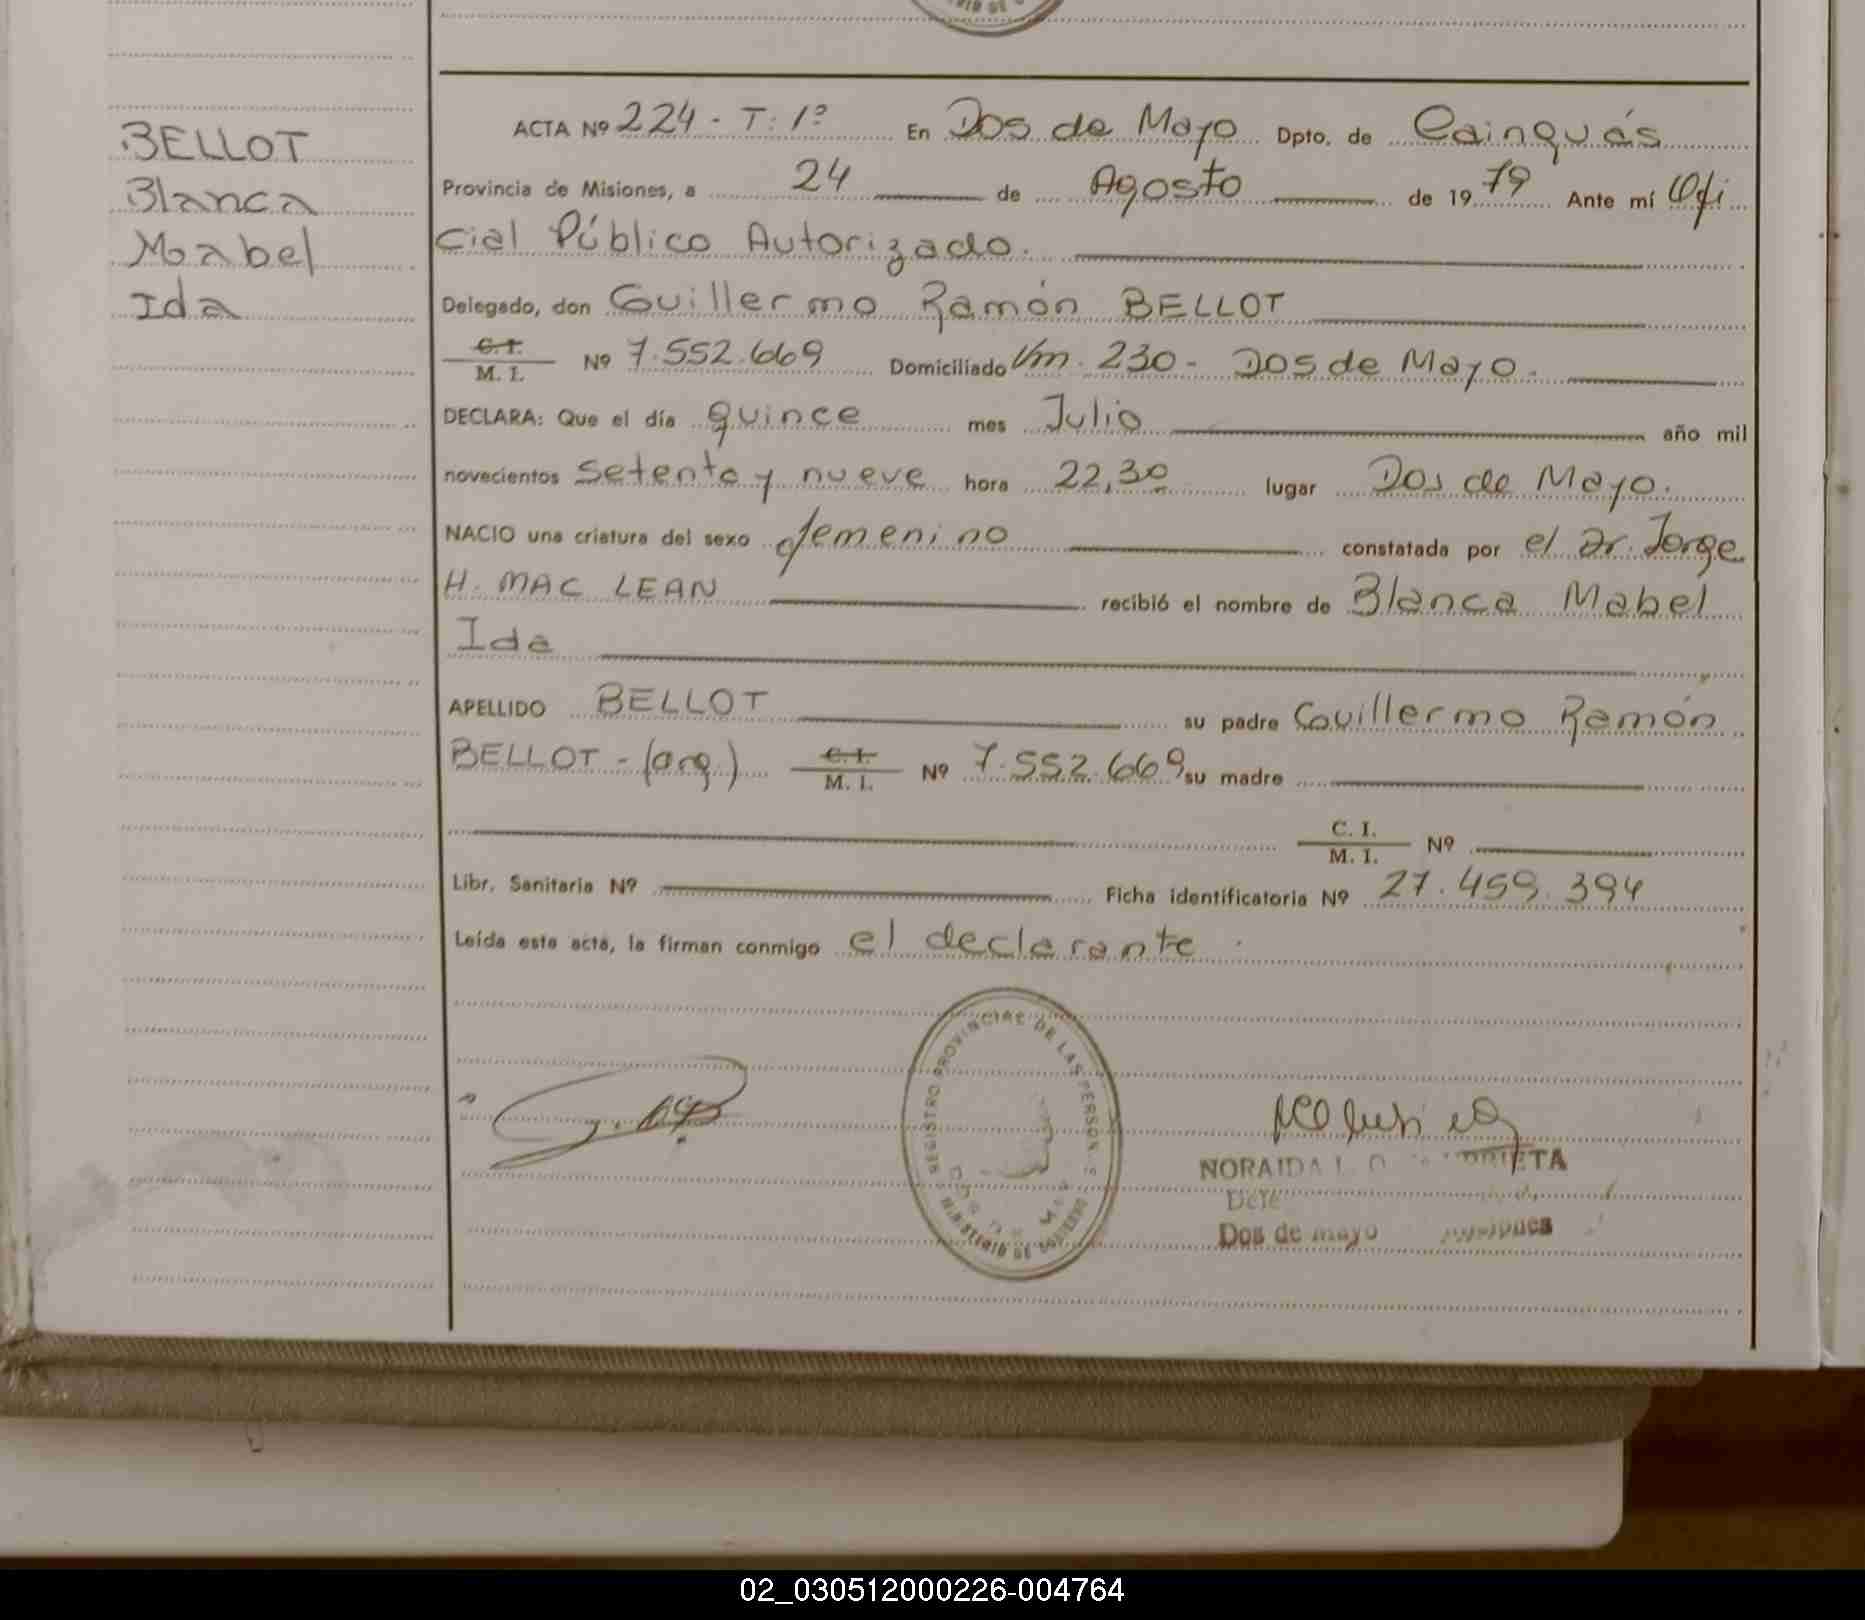 BELLOT
Blanca
Mabel
Ida
ACTA Nº 224 - T: 1º En Dos de Mayo Dpto. de Cainguás
Provincia de Misiones, a 24 de Agosto de 1979 Ante mí Ofi
cial Público Autorizado.
Delegado, don Guillermo Ramón BELLOT
C. I. / M. I. Nº 7.552.669 Domiciliado Km. 230 - Dos de Mayo.
DECLARA: Que el día quince mes Julio año mil
novecientos setenta y nueve hora 22,30 lugar Dos de Mayo.
NACIO una criatura del sexo femenino constatada por el Dr. Jorge
H. MAC LEAN recibió el nombre de Blanca Mabel
Ida
APELLIDO BELLOT su padre Guillermo Ramón
BELLOT - (arg.) C. I. / M. I. Nº 7.552.669 su madre
C. I. / M. I. Nº
Libr. Sanitaria Nº Ficha identificatoria Nº 27.459.394
Leída esta acta, la firman conmigo el declarante.
REGISTRO PROVINCIAL DE LAS PERSONAS
MINISTERIO DE GOBIERNO
NORAIDA
Dos de mayo
02_030512000226-004764